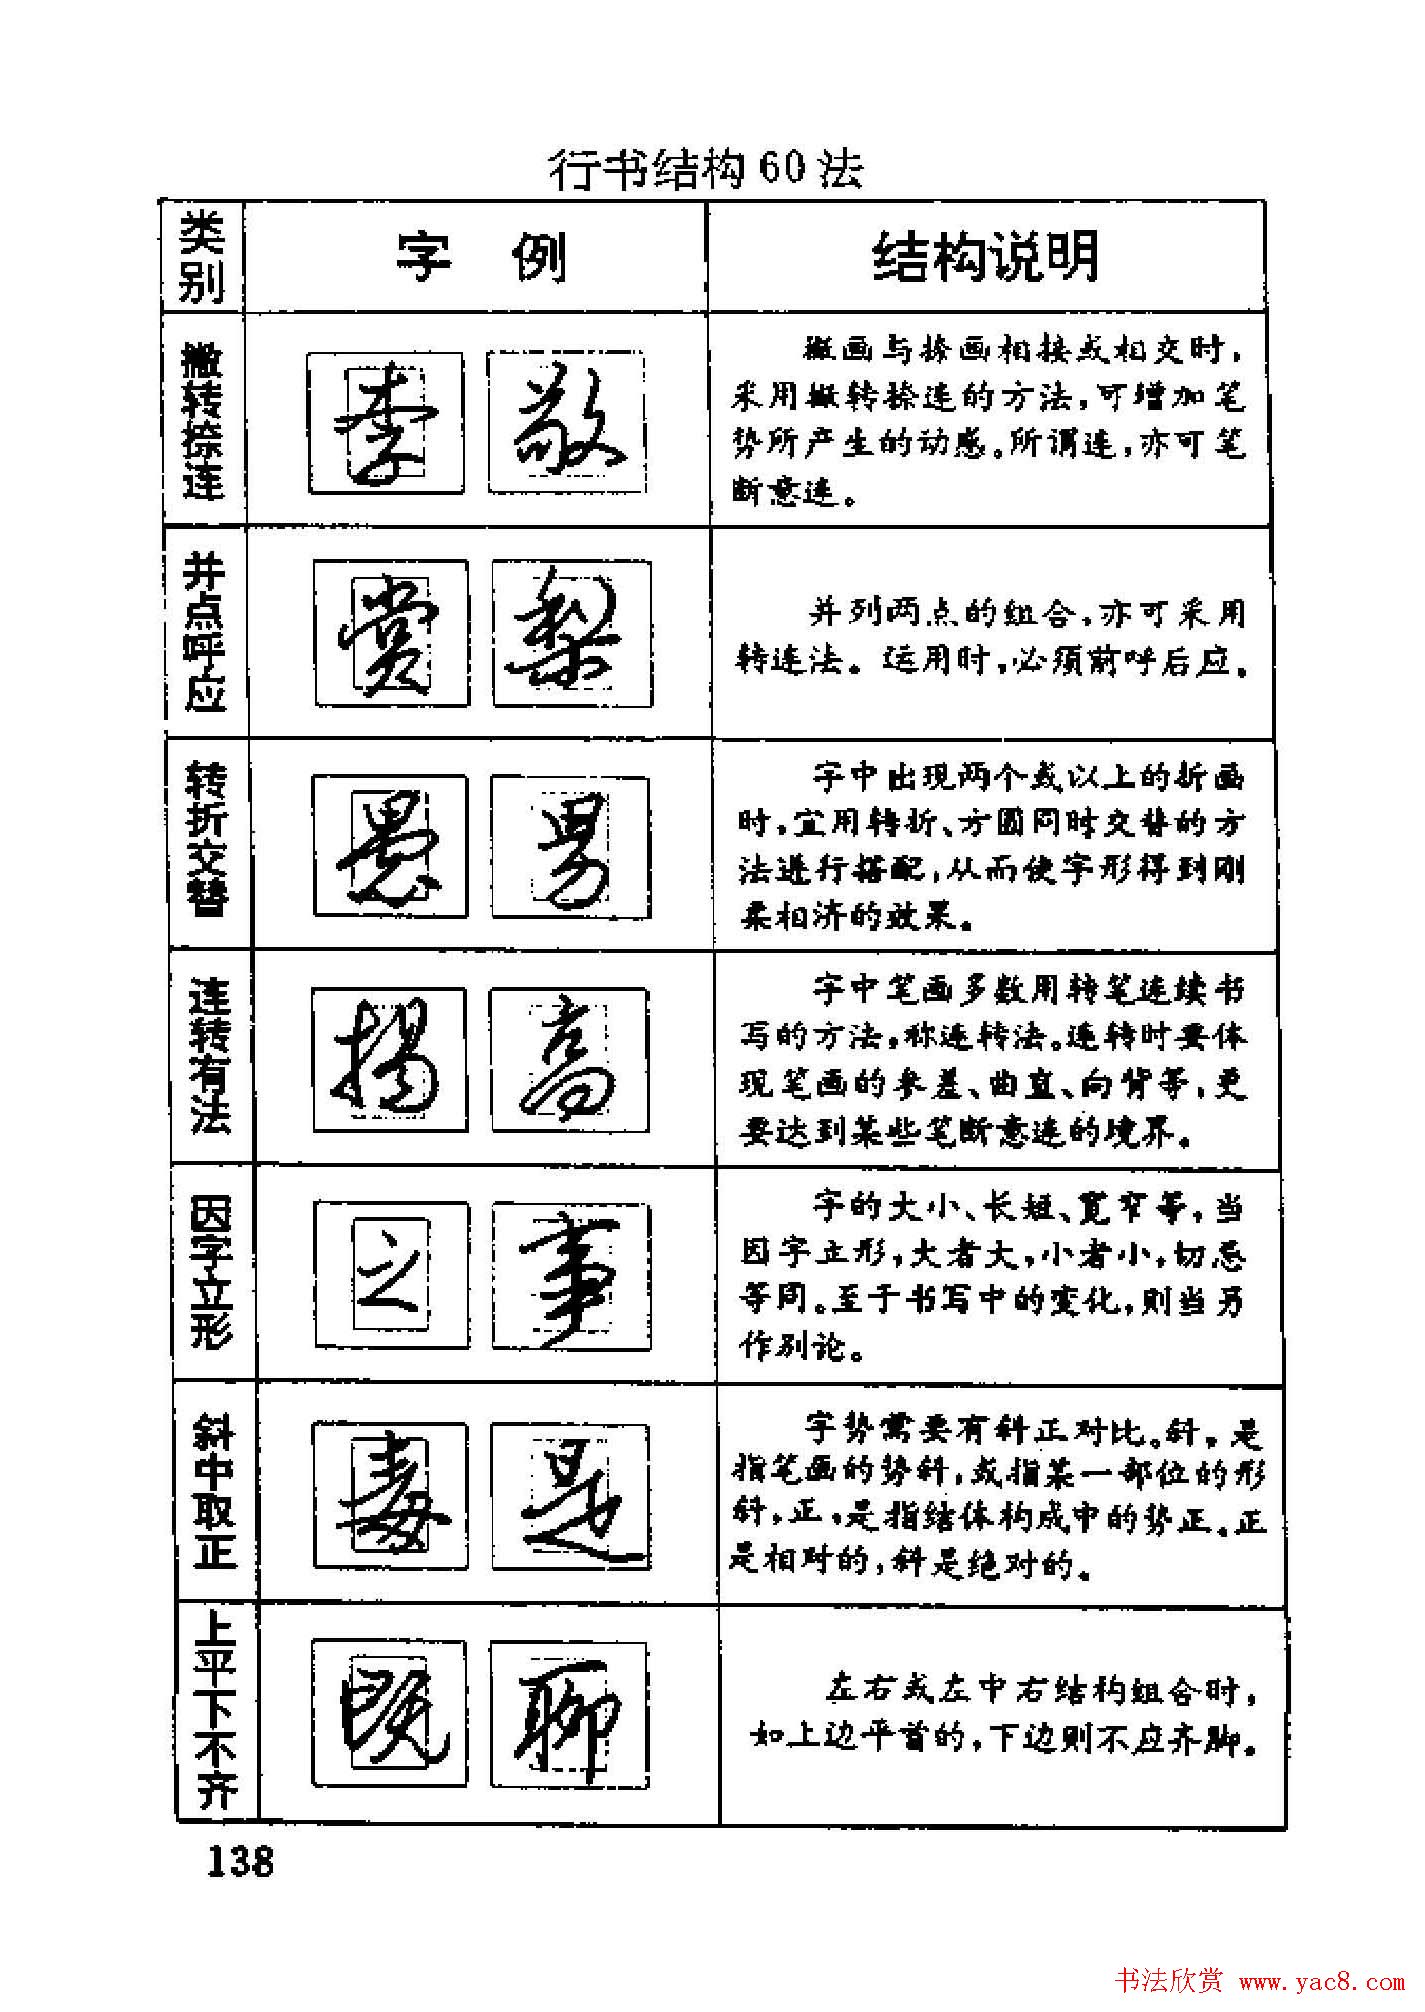 行书结构60法
类别
字 例
结构说明
撇转捺连
李 敬
撇画与捺画相接或相交时，
采用撇转捺连的方法，可增加笔
势所产生的动感。所谓连，亦可笔
断意连。
并点呼应
赏 梨
并列两点的组合，亦可采用
转连法。运用时，必须前呼后应。
转折交替
字中出现两个或以上的折画
时，宜用转折、方圆同时交替的方
法进行搭配，从而使字形得到刚
柔相济的效果。
连转有法
扬 高
字中笔画多数用转笔连续书
写的方法，称连转法。连转时要体
现笔画的参差、曲直、向背等，更
要达到某些笔断意连的境界。
因字立形
之 事
字的大小、长短、宽窄等，当
因字立形，大者大，小者小，切忌
等同。至于书写中的变化，则当另
作别论。
斜中取正
毒 是
字势需要有斜正对比。斜，是
指笔画的势斜，或指某一部位的形
斜，正，是指结体构成中的势正。正
是相对的，斜是绝对的。
上平下不齐
既 聊
左右或左中右结构组合时，
如上边平首的，下边则不应齐脚。
138
书法欣赏 www.yac8.com